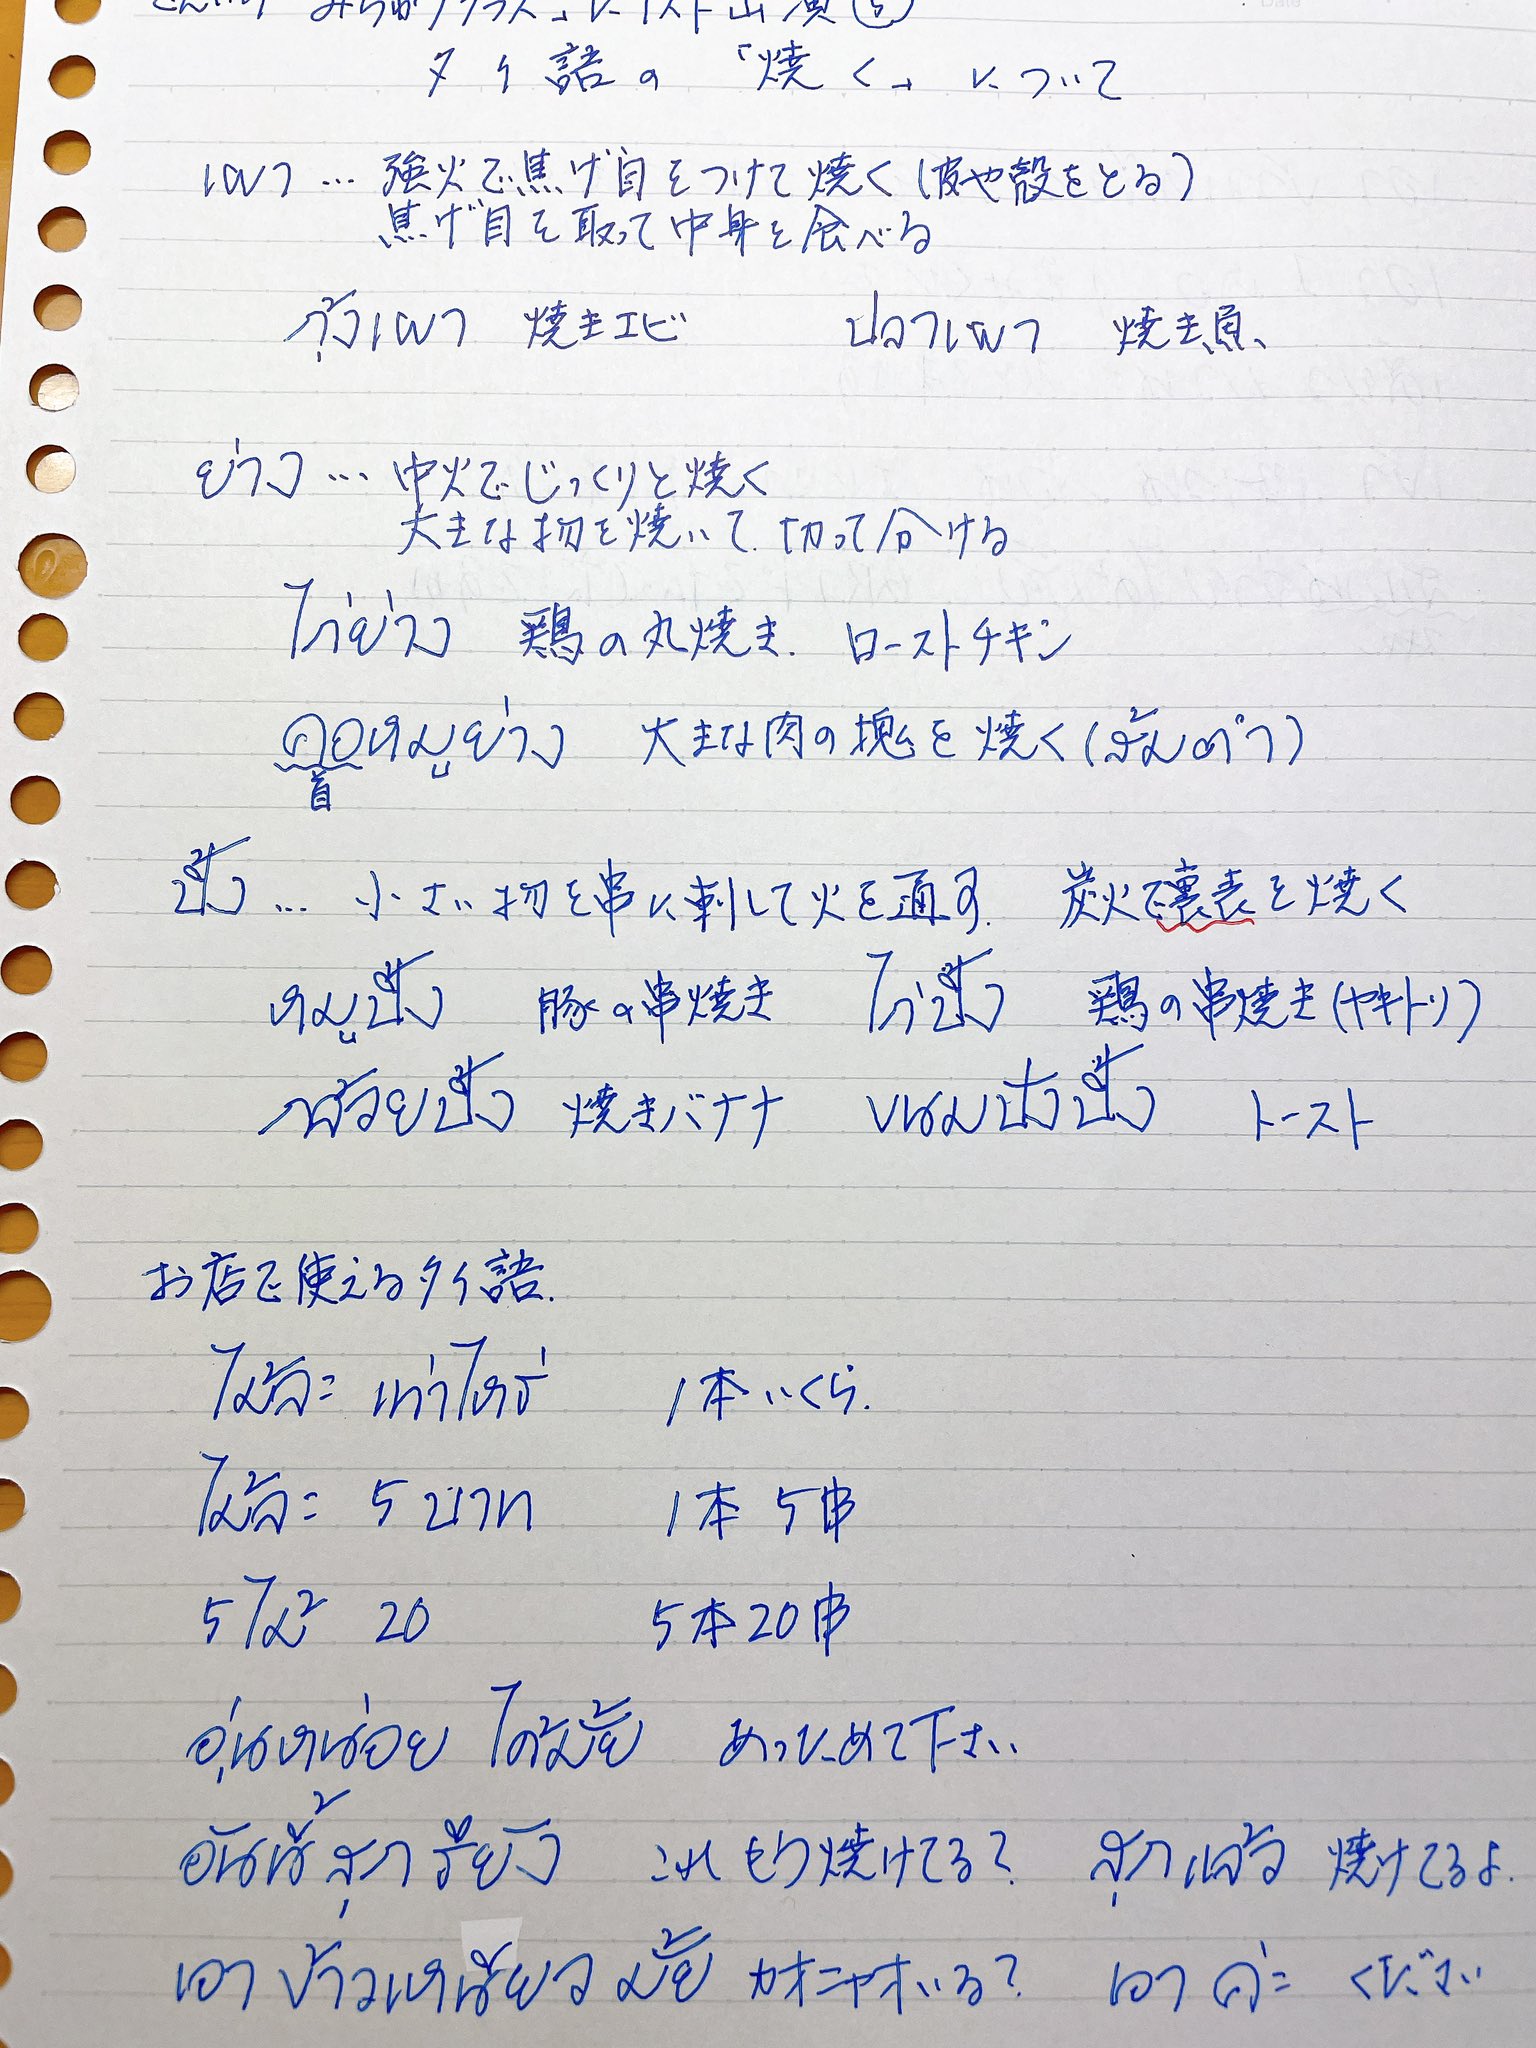 みちかクラス」にゲスト出演⑤
タイ語の「焼く」について
เผา … 強火で焦げ目をつけて焼く(皮や殻をとる)
焦げ目を取って中身を食べる
กุ้งเผา 焼きエビ ปลาเผา 焼き魚、
ย่าง … 中火でじっくりと焼く
大きな物を焼いて、切って分ける
ไก่ย่าง 鶏の丸焼き. ローストチキン
คอหมูย่าง 大きな肉の塊を焼く(ส้มตำ)
首
ปิ้ง … 小さい物を串に刺して火を通す. 炭火で裏表を焼く
หมูปิ้ง 豚の串焼き ไก่ปิ้ง 鶏の串焼き(ヤキトリ)
กล้วยปิ้ง 焼きバナナ ขนมปังปิ้ง トースト
お店で使えるタイ語.
ไม้ละ เท่าไหร่ 1本いくら.
ไม้ละ 5 บาท 1本 5B
5 ไม้ 20 5本20B
อุ่นหน่อย ได้มั้ย あっためて下さい
อันนี้ สุก รึยัง これもう焼けてる? สุกแล้ว 焼けてるよ.
เอา ข้าวเหนียว มั้ย カオニャオいる? เอา ค่ะ ください